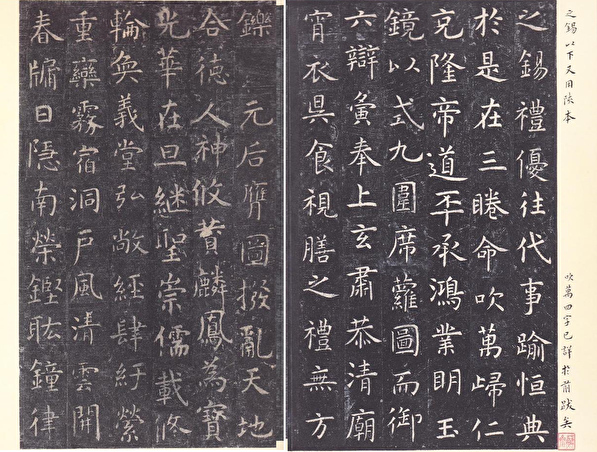 之錫以下又用陝本
吹萬四字已詳於前跋矣
之錫禮優往代事踰恒典
於是在三睠命吹萬歸仁
克隆帝道丕承鴻業明玉
鏡以式九圍席蘿圖而御
六辯寅奉上玄肅恭清廟
宵衣昃食視膳之禮無方
鑠 元后膺圖撥亂天地
合德人神攸贊麟鳳為寶
光華在旦継聖崇儒載修
輪奐義堂弘敞經肆紆縈
重欒霧宿洞戶風清雲開
春牖日隱南榮鏗耾鐘律